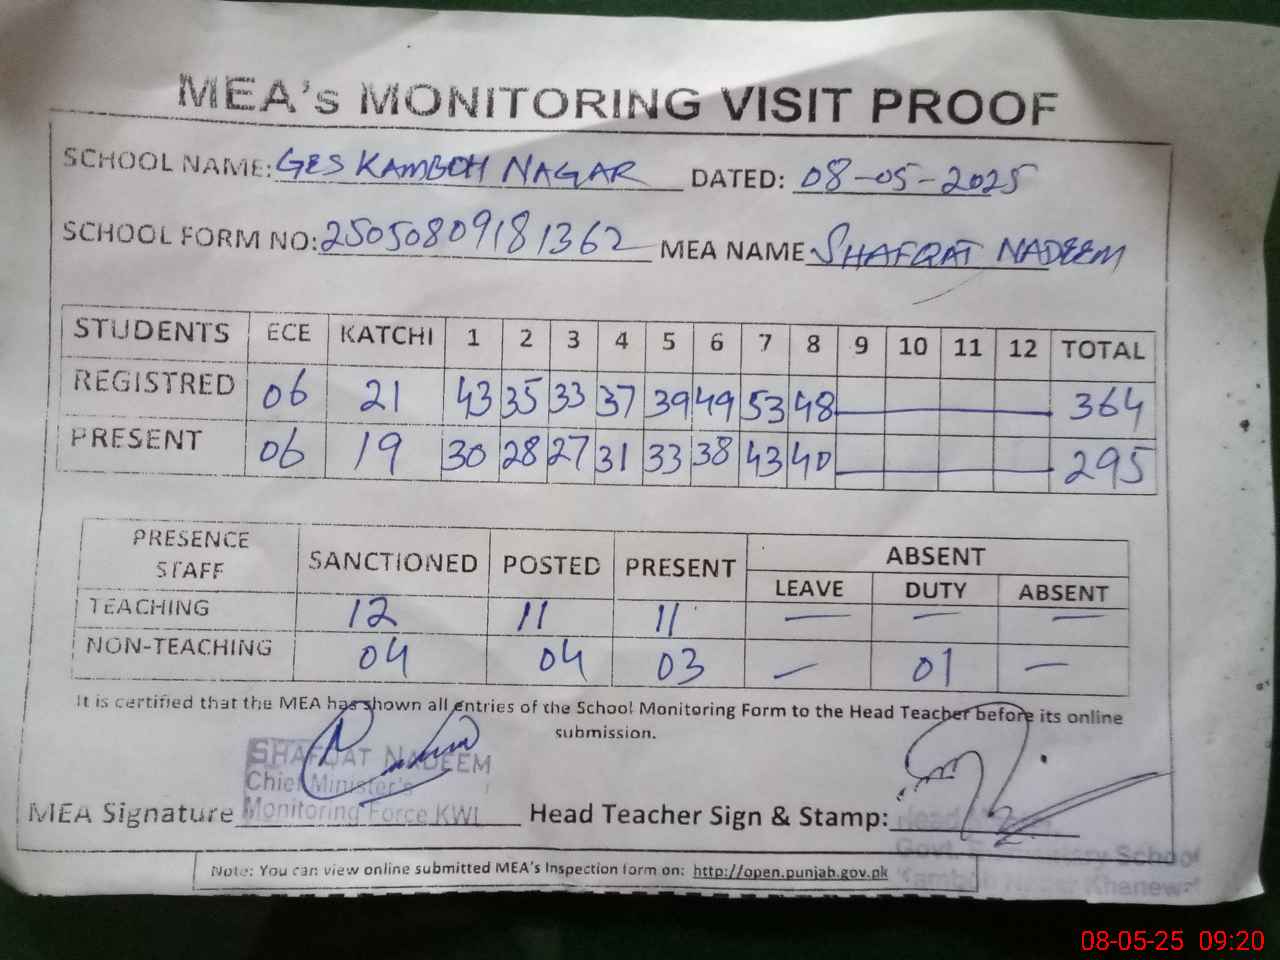 MEA's MONITORING VISIT PROOF
SCHOOL NAME: GES KAMBOH NAGAR DATED: 08-05-2025
SCHOOL FORM NO: 25050809181362 MEA NAME SHAFQAT NADEEM
STUDENTS ECE KATCHI 1 2 3 4 5 6 7 8 9 10 11 12 TOTAL
REGISTRED 06 21 43 35 33 37 39 49 53 48 364
PRESENT 06 19 30 28 27 31 33 38 43 40 295
PRESENCE STAFF SANCTIONED POSTED PRESENT ABSENT
LEAVE DUTY ABSENT
TEACHING 12 11 11 — — —
NON-TEACHING 04 04 03 — 01 —
It is certified that the MEA has shown all entries of the School Monitoring Form to the Head Teacher before its online
submission.
SHAFQAT NADEEM
Chief Minister's
Monitoring Force KWL
MEA Signature Head Teacher Sign & Stamp:
Head
Govt. Elementary School
Kamboh Nagar Khanewal
Note: You can view online submitted MEA's Inspection form on: http://open.punjab.gov.pk
08-05-25 09:20